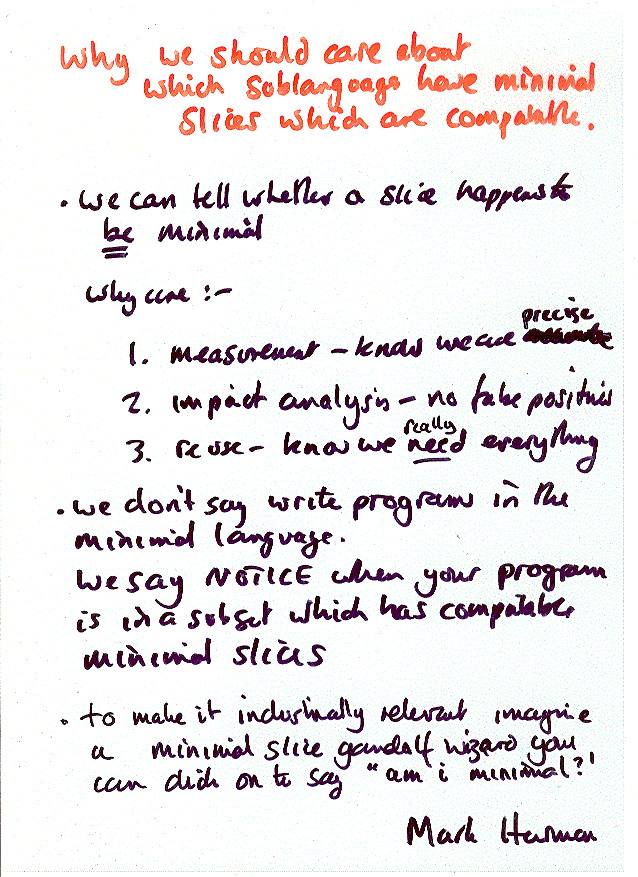 Why we should care about
which sublanguages have minimal
slices which are computable.
• we can tell whether a slice happens to
be minimal
why care :-
1. measurement - know we are precise
2. impact analysis - no false positives
3. reuse - know we really need everything
• we don't say write programs in the
minimal language.
we say NOTICE when your program
is in a subset which has computable
minimal slices
• to make it industrially relevant imagine
a minimal slice gandalf wizard you
can click on to say "am i minimal?"
Mark Harman